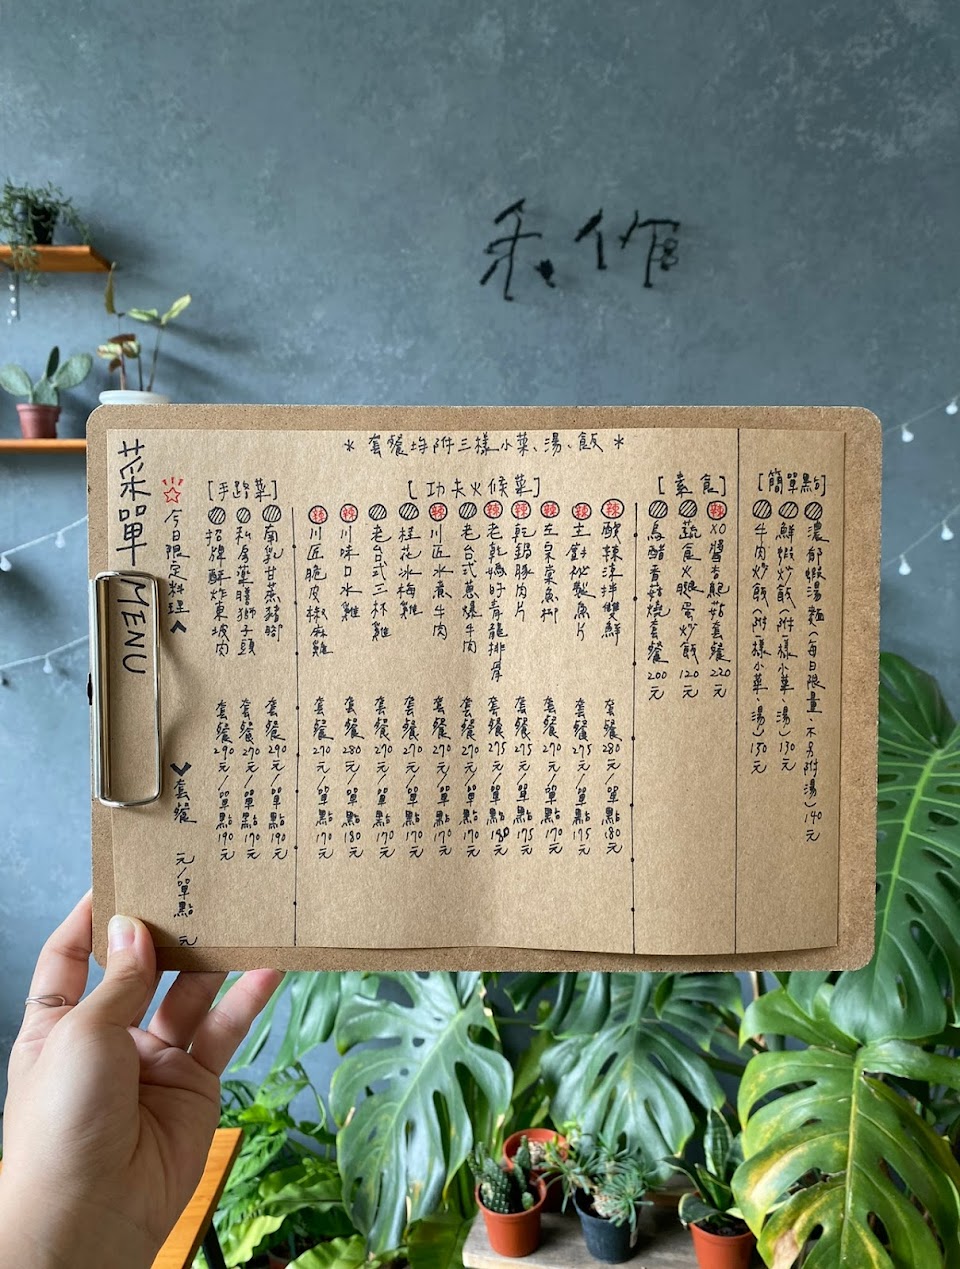 禾作
*套餐均附三樣小菜、湯、飯*
[簡單點]
濃郁蝦湯麵(每日限量、不另附湯)140元
鮮蝦炒飯(附一樣小菜、湯)130元
牛肉炒飯(附一樣小菜、湯)150元
[素食]
辣 XO醬杏鮑菇套餐220元
蔬食火腿蛋炒飯120元
烏醋香菇燒套餐200元
[功夫火候菜]
辣 酸辣涼拌雙鮮 套餐280元/單點180元
辣 主廚秘製魚片 套餐275元/單點175元
左宗棠魚柳 套餐270元/單點170元
辣 乾鍋豚肉片 套餐275元/單點175元
辣 老乾媽的青龍排骨 套餐275元/單點180元
老台式蔥爆牛肉 套餐270元/單點170元
辣 川匠水煮牛肉 套餐270元/單點170元
桂花冰梅雞 套餐270元/單點170元
老台式三杯雞 套餐270元/單點170元
辣 川味口水雞 套餐280元/單點180元
辣 川匠脆皮椒麻雞 套餐270元/單點170元
[手路菜]
南乳甘蔗豬腳 套餐290元/單點190元
私房藥膳獅子頭 套餐270元/單點170元
招牌酥炸東坡肉 套餐290元/單點190元
今日限定料理 套餐 元/單點 元
菜單MENU